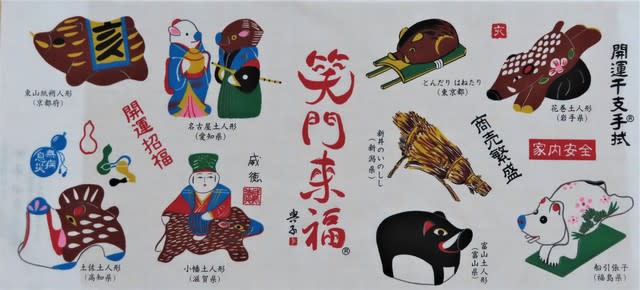 開運干支手拭®
亥
花巻土人形
(岩手県)
とんだり はねたり
(東京都)
家内安全
商売繁盛
新井のいのしし
(新潟県)
船引張子
(福島県)
富山土人形
(富山県)
笑門来福®
亥
東山紙栁人形
(京都府)
名古屋土人形
(愛知県)
開運招福
無病
息災
威徳
土佐土人形
(高知県)
小幡土人形
(滋賀県)